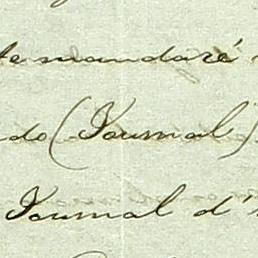 te mandaré
do (Journal)
Journal d'